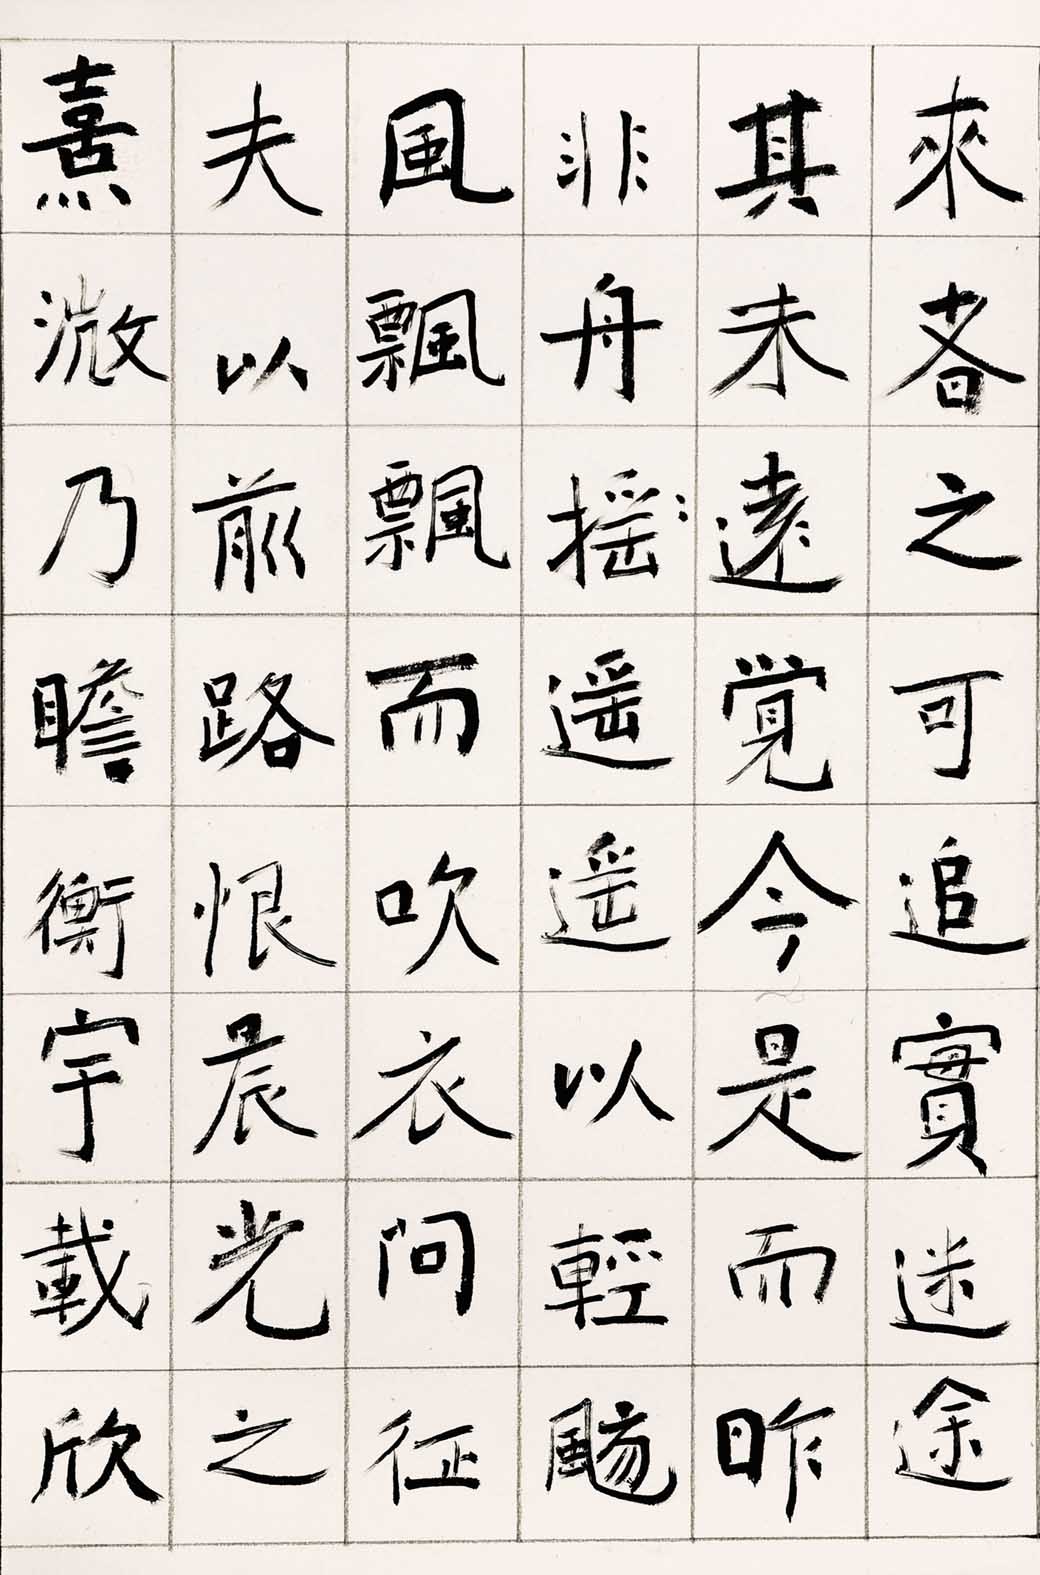 來者之可追實迷途
其未遠覚今是而昨
非舟摇遥遥以輕颺
風飄飄而吹衣問征
夫以前路恨晨光之
熹溦乃瞻衡宇載欣